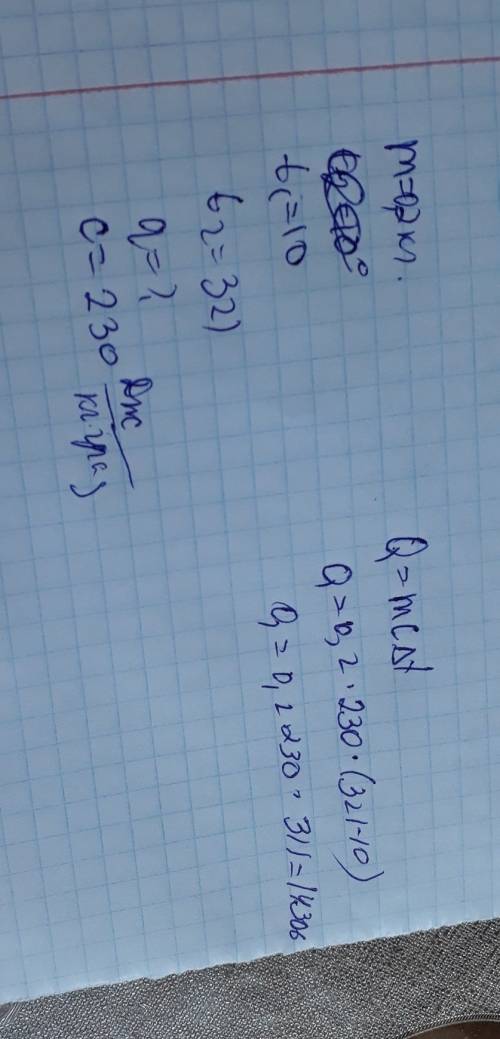 m=0,2 кг.
t₁=10
t₂=321
Q=?
c=230 Дж/кг·град
Q=mcΔt
Q=0,2·230·(321-10)
Q=0,2·230·311=14306